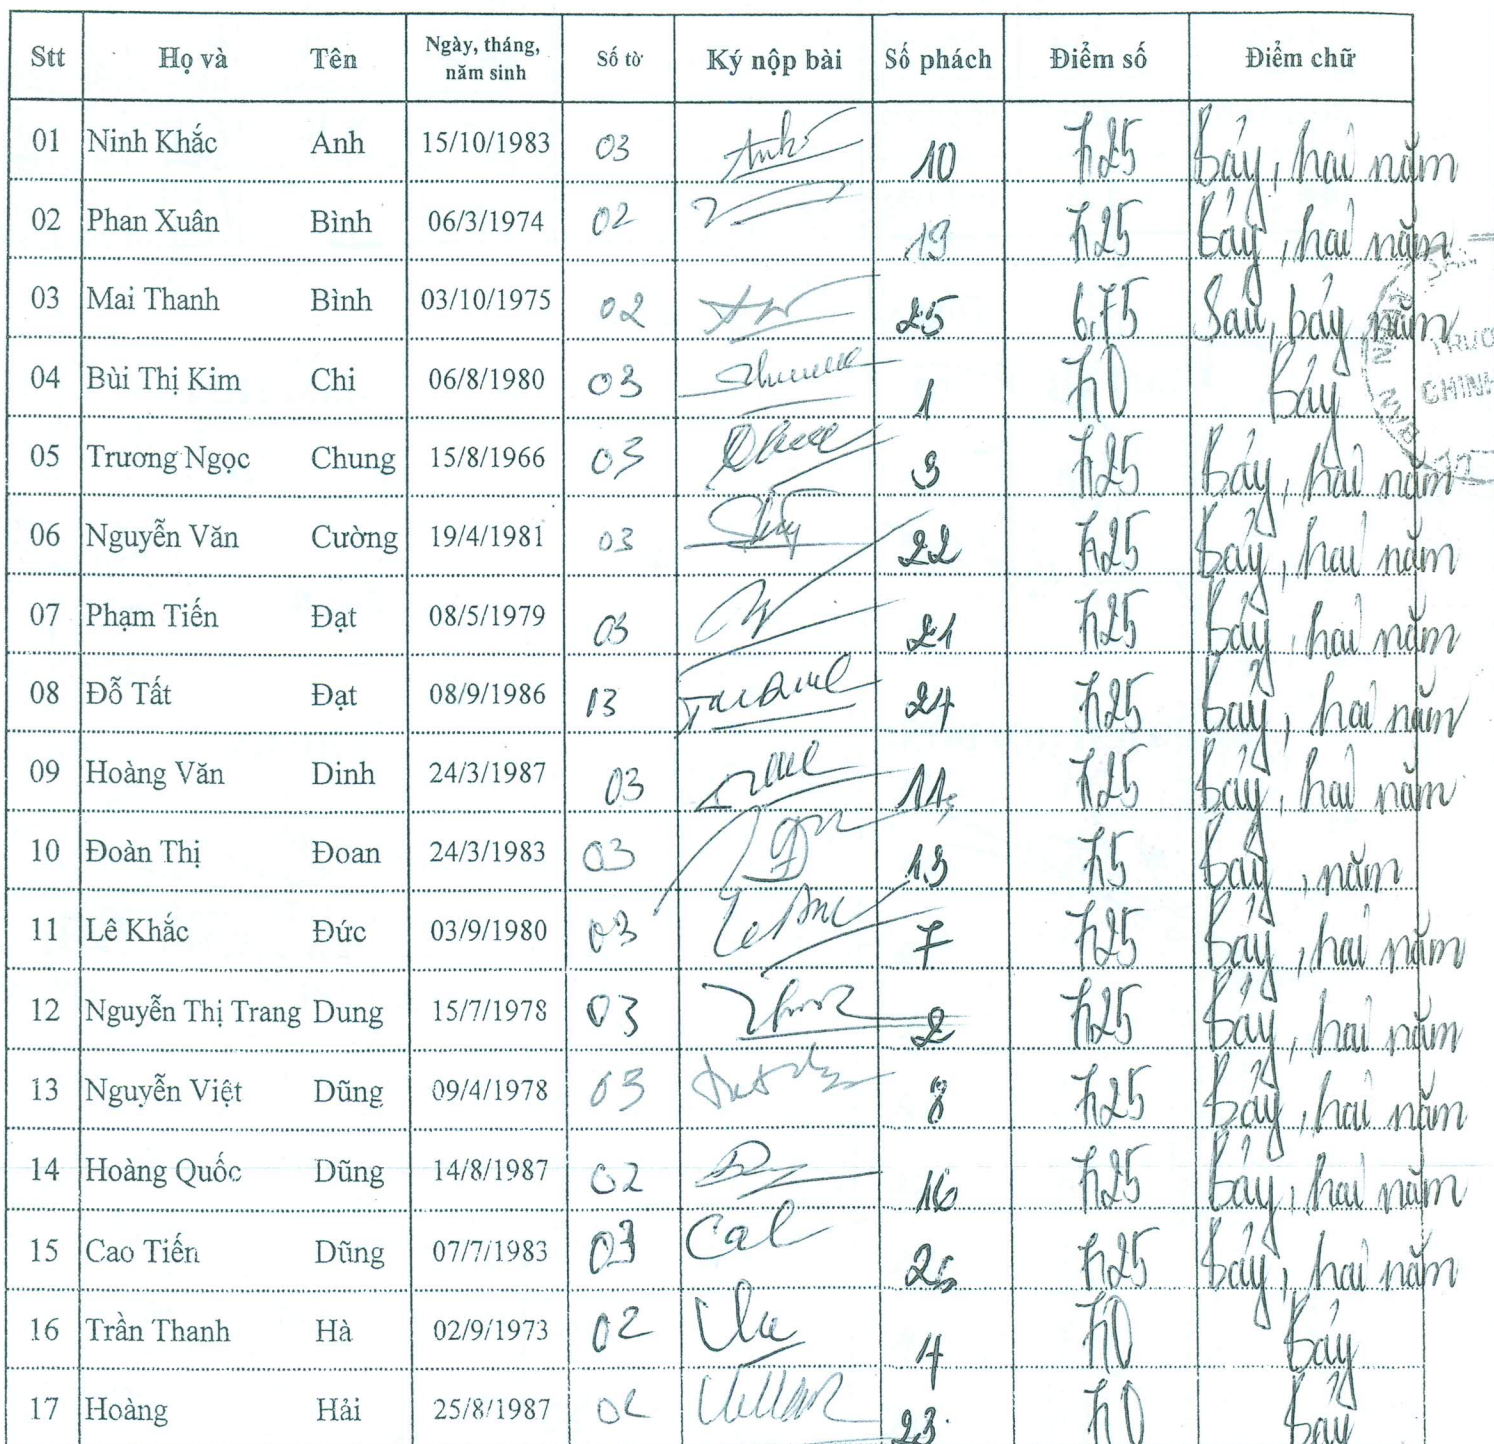 Stt Họ và Tên Ngày, tháng, năm sinh Số tờ Ký nộp bài Số phách Điểm số Điểm chữ
01 Ninh Khắc Anh 15/10/1983 03 10 7,25 Bảy, hai năm
02 Phan Xuân Bình 06/3/1974 02 19 7,25 Bảy, hai năm
03 Mai Thanh Bình 03/10/1975 02 25 6,75 Sáu, bảy năm
04 Bùi Thị Kim Chi 06/8/1980 03 1 7,0 Bảy
05 Trương Ngọc Chung 15/8/1966 03 3 7,25 Bảy, hai năm
06 Nguyễn Văn Cường 19/4/1981 03 22 7,25 Bảy, hai năm
07 Phạm Tiến Đạt 08/5/1979 03 21 7,25 Bảy, hai năm
08 Đỗ Tất Đạt 08/9/1986 24 7,25 Bảy, hai năm
09 Hoàng Văn Dinh 24/3/1987 03 11 7,25 Bảy, hai năm
10 Đoàn Thị Đoan 24/3/1983 03 13 7,5 Bảy, năm
11 Lê Khắc Đức 03/9/1980 03 7 7,25 Bảy, hai năm
12 Nguyễn Thị Trang Dung 15/7/1978 03 2 7,25 Bảy, hai năm
13 Nguyễn Việt Dũng 09/4/1978 03 8 7,25 Bảy, hai năm
14 Hoàng Quốc Dũng 14/8/1987 02 16 7,25 Bảy, hai năm
15 Cao Tiến Dũng 07/7/1983 03 7,25 Bảy, hai năm
16 Trần Thanh Hà 02/9/1973 02 4 7,0 Bảy
17 Hoàng Hải 25/8/1987 02 23 7,0 Bảy